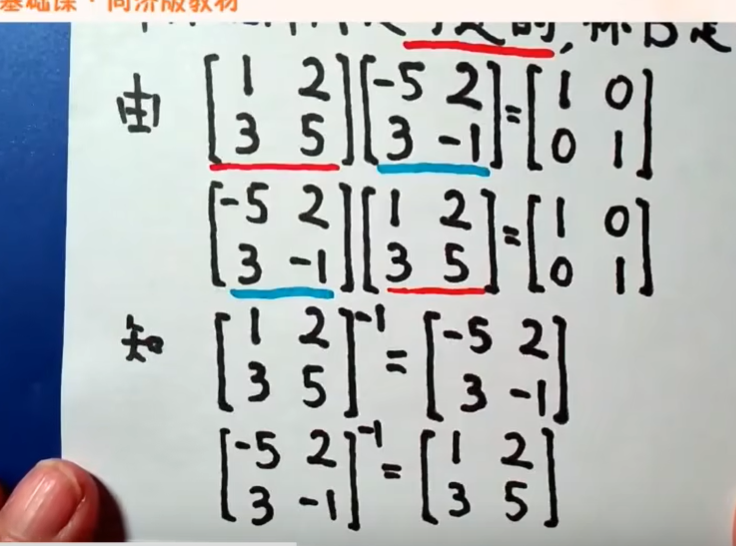 基础课·同济版教材
由 [1 2; 3 5] [-5 2; 3 -1] = [1 0; 0 1]
[-5 2; 3 -1] [1 2; 3 5] = [1 0; 0 1]
知 [1 2; 3 5]⁻¹ = [-5 2; 3 -1]
[-5 2; 3 -1]⁻¹ = [1 2; 3 5]